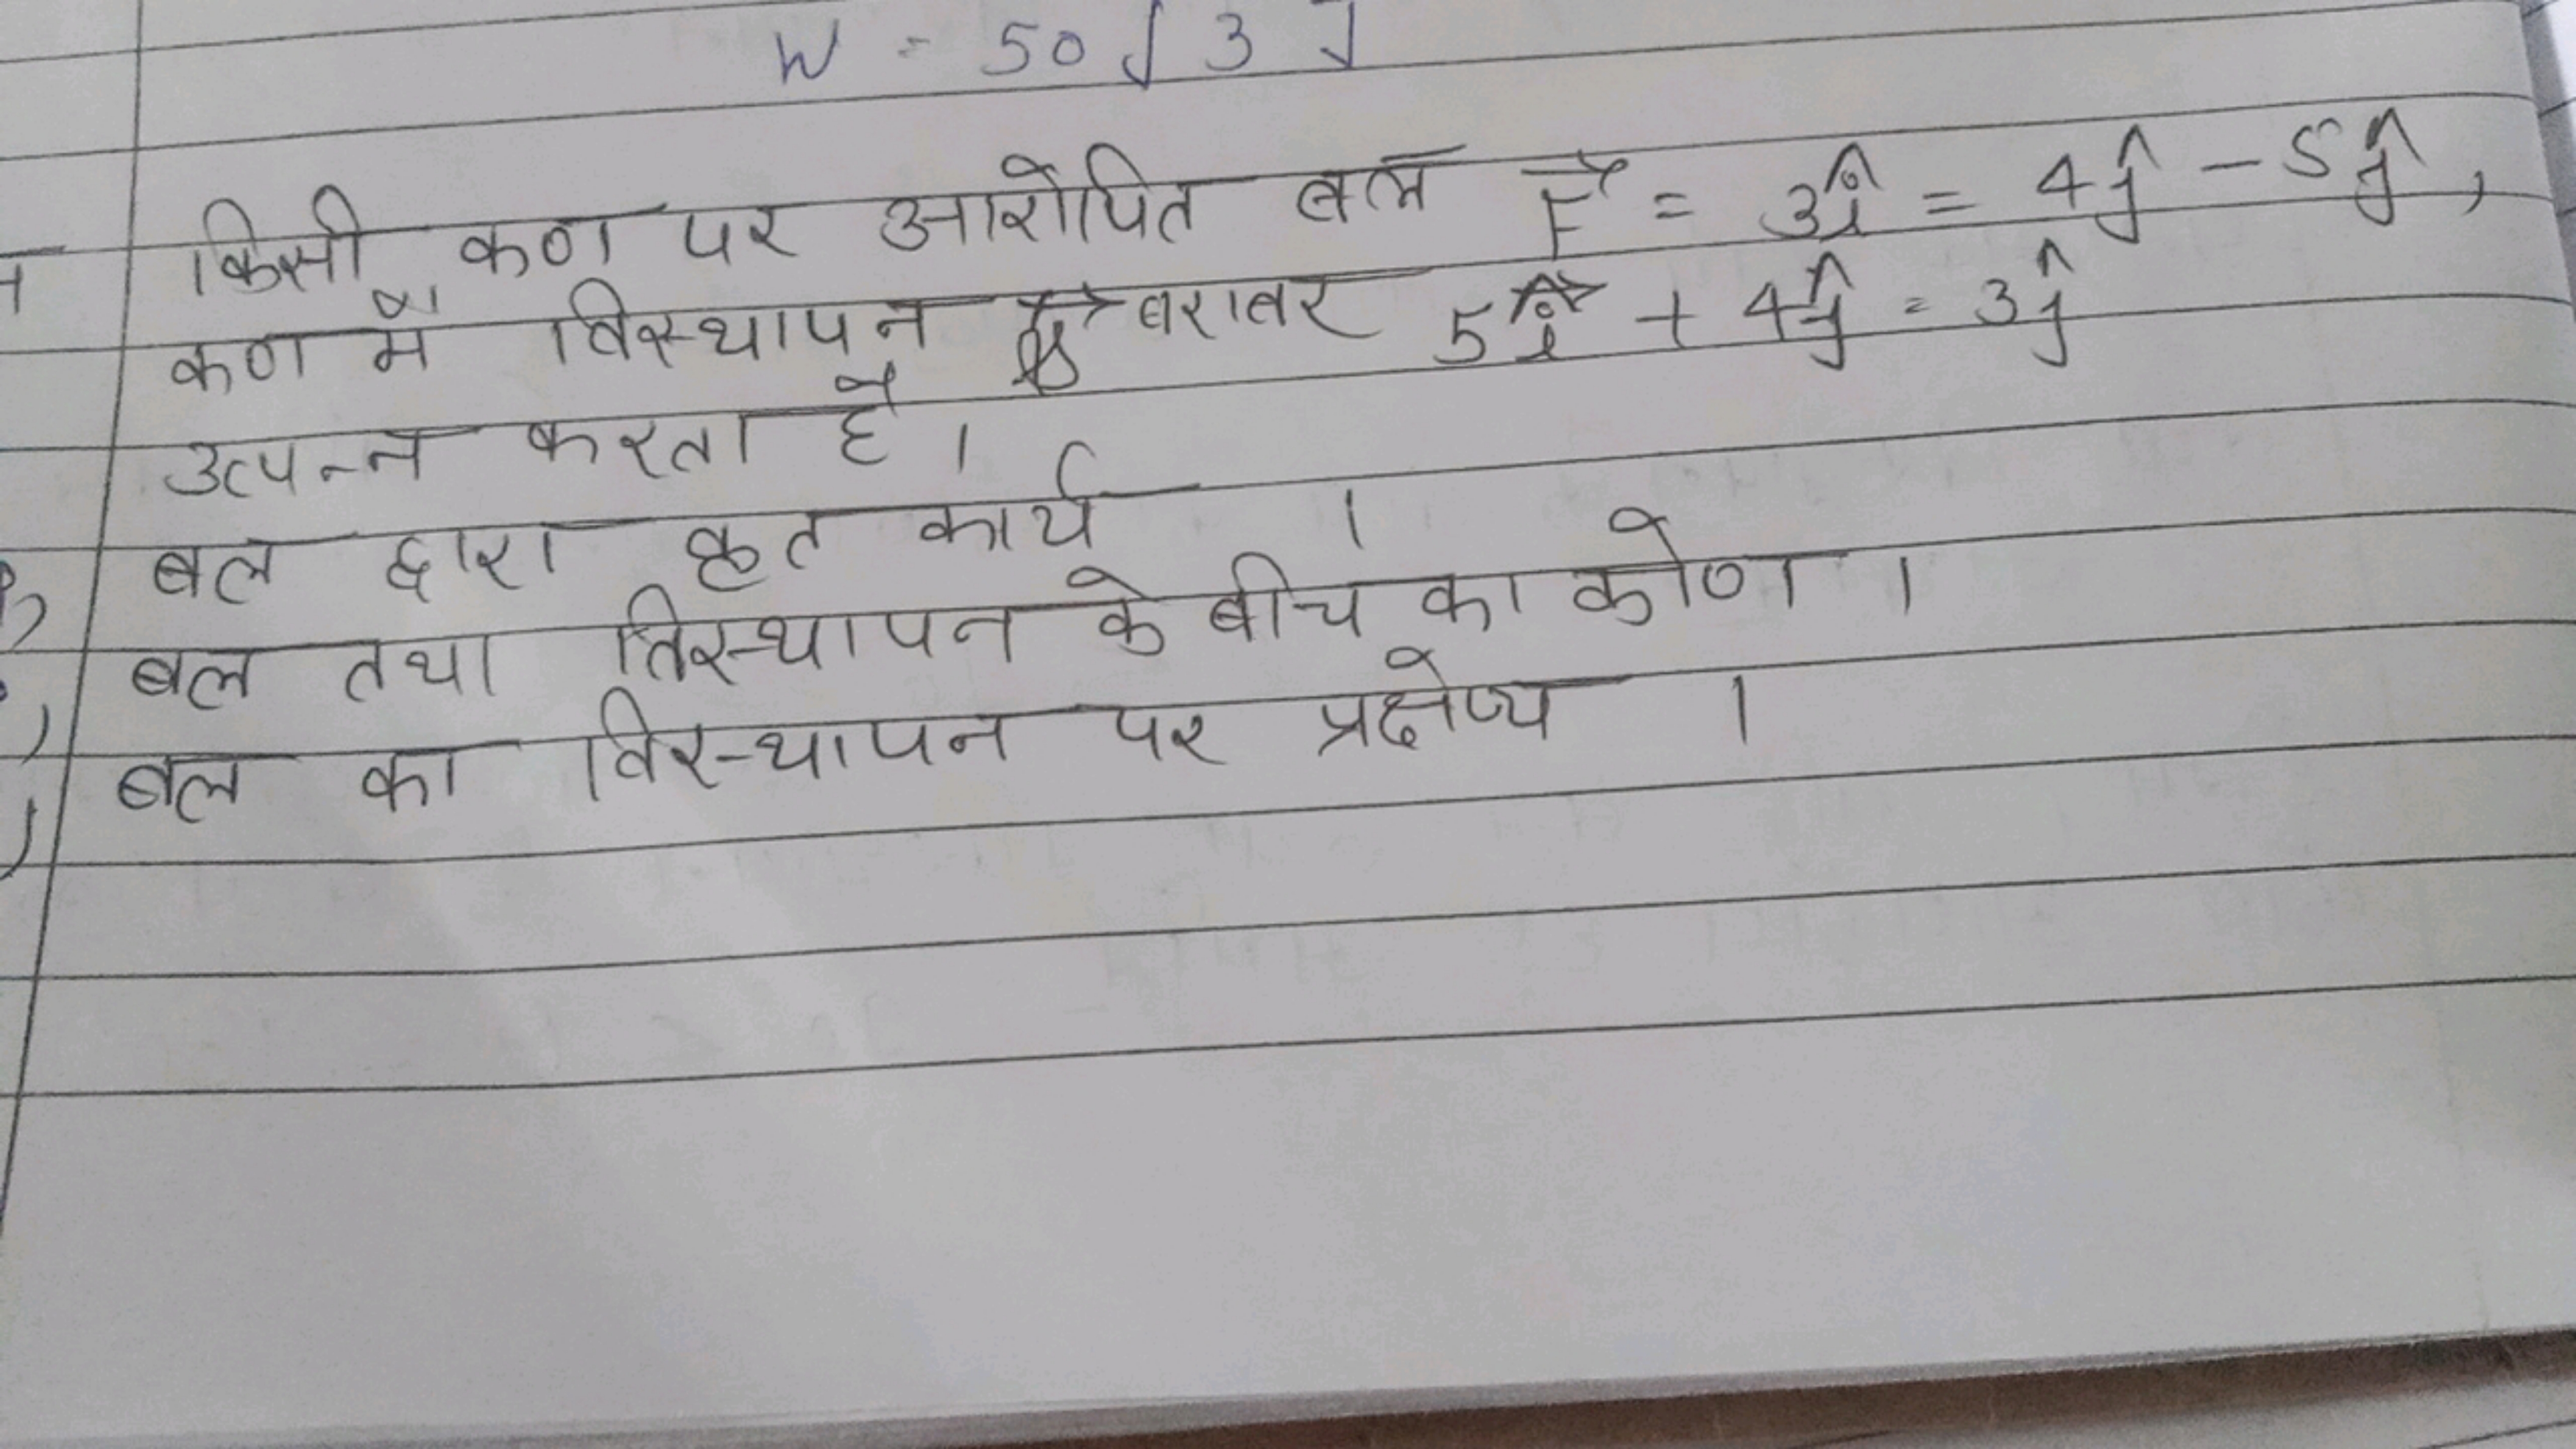 W = 50√3 J
किसी कण पर आरोपित बल F⃗ = 3î = 4ĵ - 5ĵ,
कण में विस्थापन बराबर 5î + 4ĵ = 3ĵ
उत्पन्न करता है ।
बल द्वारा कृत कार्य ।
बल तथा विस्थापन के बीच का कोण ।
बल का विस्थापन पर प्रक्षेप्य ।